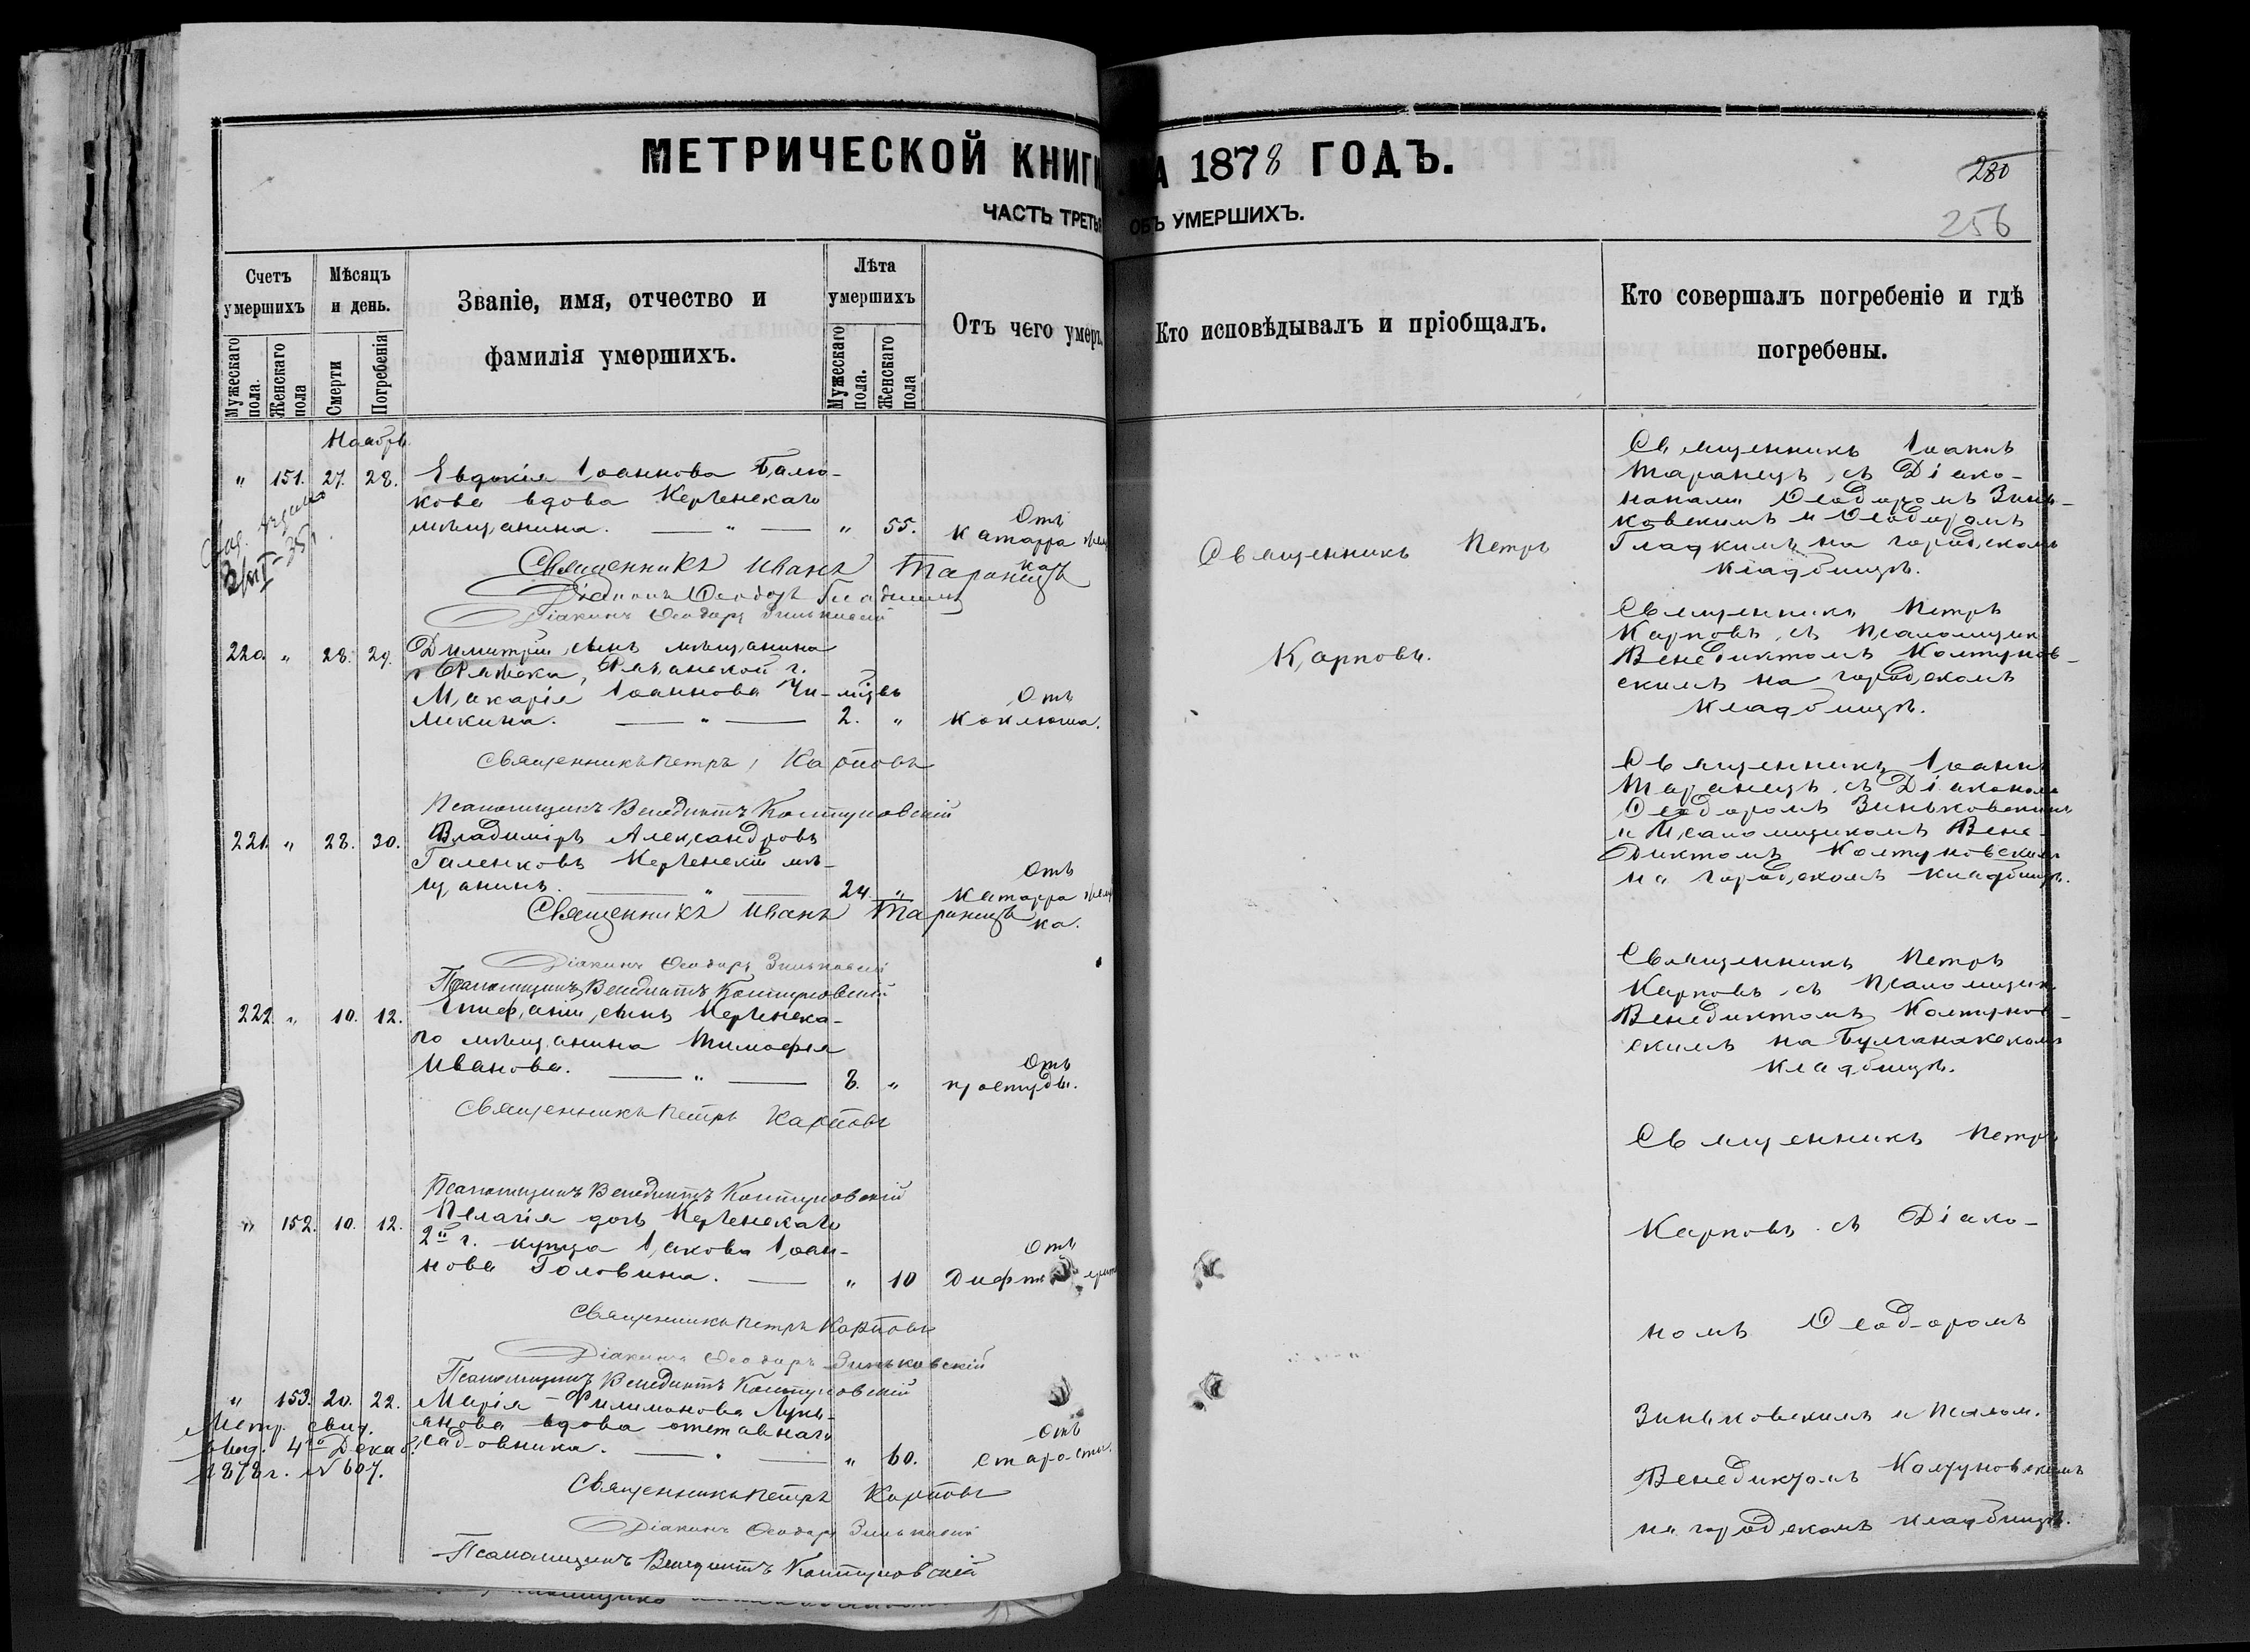 МЕТРИЧЕСКОЙ КНИГИ НА 1878 ГОДЪ.
280
256
ЧАСТЬ ТРЕТЬЯ ОБЪ УМЕРШИХЪ.
Счетъ умершихъ
Мужескаго пола.
Женскаго пола
Мѣсяцъ и день.
Смерти
Погребенія
Званіе, имя, отчество и фамилія умершихъ.
Лѣта умершихъ
Мужескаго пола.
Женскаго пола
Отъ чего умеръ.
Кто исповѣдывалъ и пріобщалъ.
Кто совершалъ погребеніе и гдѣ погребены.
Ноябрь.
" 151. 27. 28. Евдокія Іоаннова Балю-
кова вдова Керченскаго
мѣщанина. — " — " 55. Отъ
катарра
Священникъ Иванъ Таранецъ
Діаконъ Ѳеодоръ Гладкий
Діаконъ Ѳеодоръ Зиньковскій
220. " 28. 29. Димитрій, сынъ мѣщанина
г. Ряжска, Рязанской г.
Макарія Іоаннова Чи- мѣсъ
ликина. — " — 2. " Отъ
коклюша.
Священникъ Петръ Карповъ
Псаломщикъ Венедиктъ Колтуновскій
221. " 28. 30. Владиміръ Александровъ
Галенковъ Керченскій мѣ-
щанинъ. — " — 24 " Отъ
катарра
ка.
Священникъ Иванъ Таранецъ
Діаконъ Ѳеодоръ Зиньковскій
Псаломщикъ Венедиктъ Колтуновскій
222. " 10. 12. Епифаній, сынъ Керченска-
го мѣщанина Тимофея
Иванова. — " — 8. " Отъ
простуды.
Священникъ Петръ Карповъ
Псаломщикъ Венедиктъ Колтуновскій
" 152. 10. 12. Пелагія дочь Керченскаго
2й г. купца Іакова Іоан-
нова Головина. — " 10 Отъ
Священникъ Петръ Карповъ
Діаконъ Ѳеодоръ Зиньковскій
Псаломщикъ Венедиктъ Колтуновскій
" 153. 20. 22. Марія Филимонова Лукь-
янова вдова отставнаго
садовника. — " 60. Отъ
старости.
Метр. свид.
выд. 4го Декаб.
1878 г. № 607.
Священникъ Петръ Карповъ
Діаконъ Ѳеодоръ Зиньковскій
Псаломщикъ Венедиктъ Колтуновскій
Священникъ Петръ
Карповъ.
Священникъ Іоаннъ
Таранецъ, съ Діако-
нами Ѳеодоромъ Зинь-
ковскимъ и Ѳеодоромъ
Гладкимъ на городскомъ
кладбищѣ.
Священникъ Петръ
Карповъ, съ Псаломщик.
Венедиктомъ Колтунов-
скимъ на городскомъ
кладбищѣ.
Священникъ Іоаннъ
Таранецъ, съ Діакономъ
Ѳеодоромъ Зиньковскимъ
и Псаломщикомъ Вене-
диктомъ Колтуновскимъ
на городскомъ кладбищѣ.
Священникъ Петръ
Карповъ, съ Псаломщик.
Венедиктомъ Колтунов-
скимъ на Булганакскомъ
кладбищѣ.
Священникъ Петръ
Карповъ съ Діако-
номъ Ѳеодоромъ
Зиньковскимъ и Псалом.
Венедиктомъ Колтуновскимъ
на городскомъ кладбищѣ.